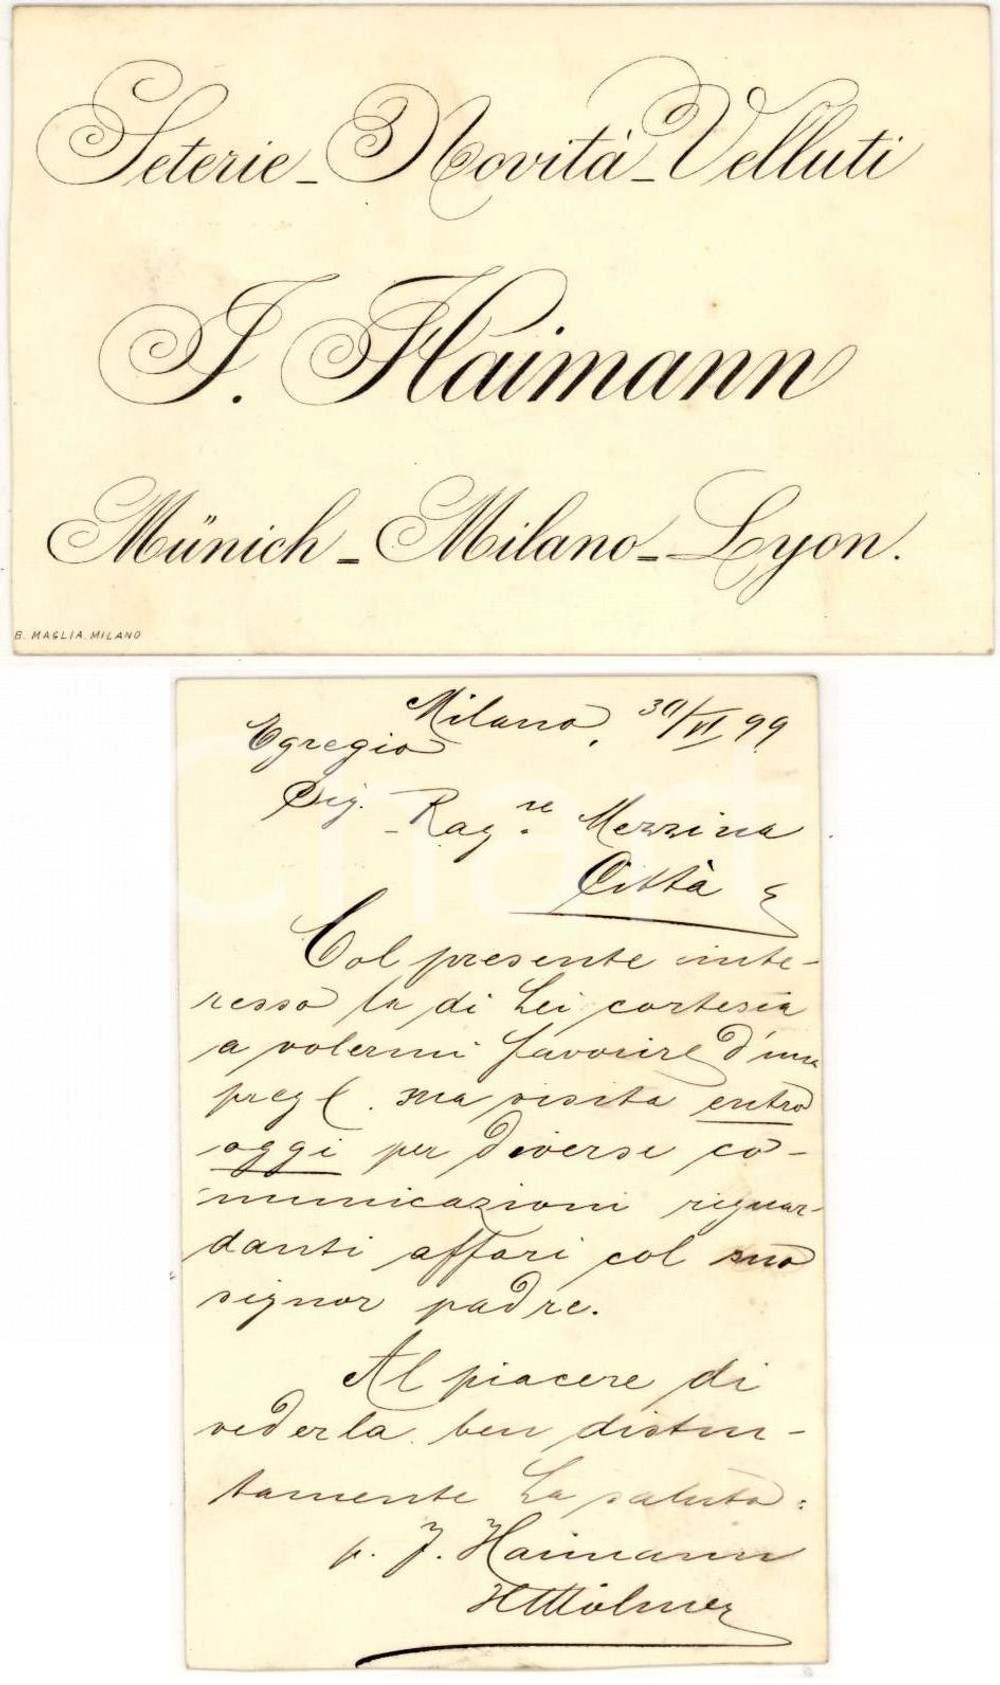 Seterie - Novità - Velluti
J. Haimann
Münich - Milano - Lyon.
B. MAGLIA. MILANO
Milano, 30/VI 99
Egregio
Sig. Rag.re Mezzina
Città
Col presente inte-
resso la di Lei cortesia
a volermi favorire d'una
preg. ma visita entro
oggi per diverse co-
municazioni riguar-
danti affari col suo
signor padre.
Al piacere di
vederla ben distin-
tamente La saluto:
p. J. Haimann